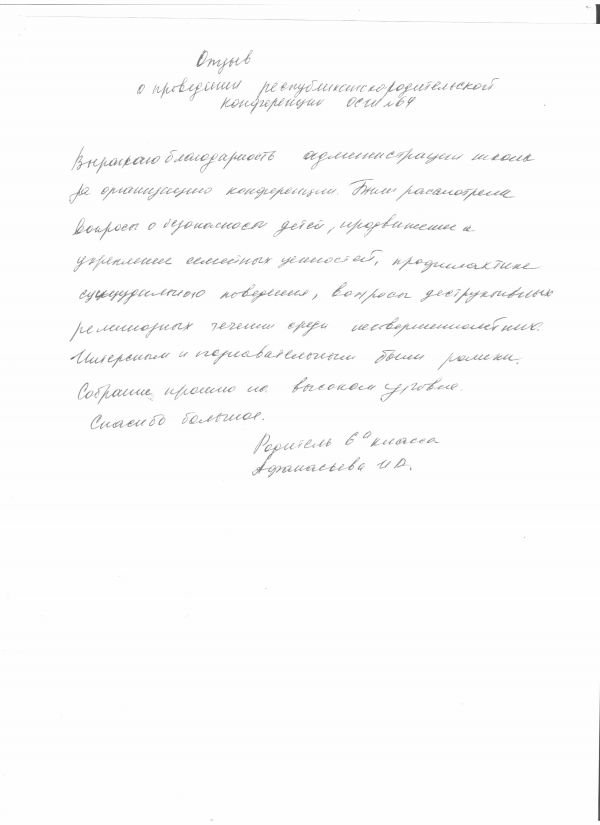 Отзыв
о проведении республиканской родительской
конференции ОСШ №64
Выражаю благодарность администрации школы
за организацию конференции. Были рассмотрены
вопросы о безопасности детей, продвижение и
укрепление семейных ценностей, профилактике
суицидильного поведения, вопросы деструктивных
религиозных течении среди несовершеннолетних.
Интересным и познавательным были ролики.
Собрание прошло на высоком уровне.
Спасибо большое.
Родитель 6 класса
Афанасьева И